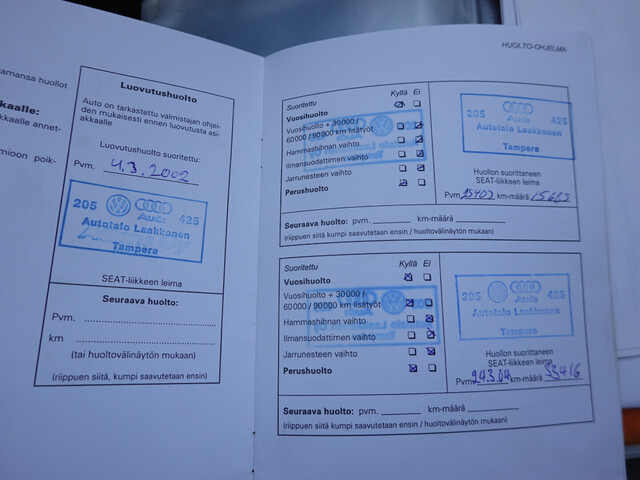 amansa huollot
kaalle:
kkaalle annet-
mioon poik-
Luovutushuolto
Auto on tarkastettu valmistajan ohjei-
den mukaisesti ennen luovutusta asi-
akkaalle
Luovutushuolto suoritettu:
Pvm. 4.3.2002
205 Audi 425
Autotalo Laakkonen
Tampere
SEAT-liikkeen leima
Seuraava huolto:
Pvm.
km
(tai huoltovälinäytön mukaan)
(riippuen siitä, kumpi saavutetaan ensin)
HUOLTO-OHJELMA
Suoritettu Kyllä Ei
Vuosihuolto
Vuosihuolto + 30000 /
60000 / 90000 km lisätyöt
Hammashihnan vaihto
Ilmansuodattimen vaihto
Jarrunesteen vaihto
Perushuolto
205 Audi 425
Autotalo Laakkonen
Tampere
Huollon suorittaneen
SEAT-liikkeen leima
Pvm. km-määrä
Seuraava huolto: pvm. km-määrä
(riippuen siitä kumpi saavutetaan ensin / huoltovälinäytön mukaan)
Suoritettu Kyllä Ei
Vuosihuolto
Vuosihuolto + 30000 /
60000 / 90000 km lisätyöt
Hammashihnan vaihto
Ilmansuodattimen vaihto
Jarrunesteen vaihto
Perushuolto
205 Audi 425
Autotalo Laakkonen
Tampere
Huollon suorittaneen
SEAT-liikkeen leima
Pvm. 24.3.04 km-määrä 33416
Seuraava huolto: pvm. km-määrä
(riippuen siitä kumpi saavutetaan ensin / huoltovälinäytön mukaan)